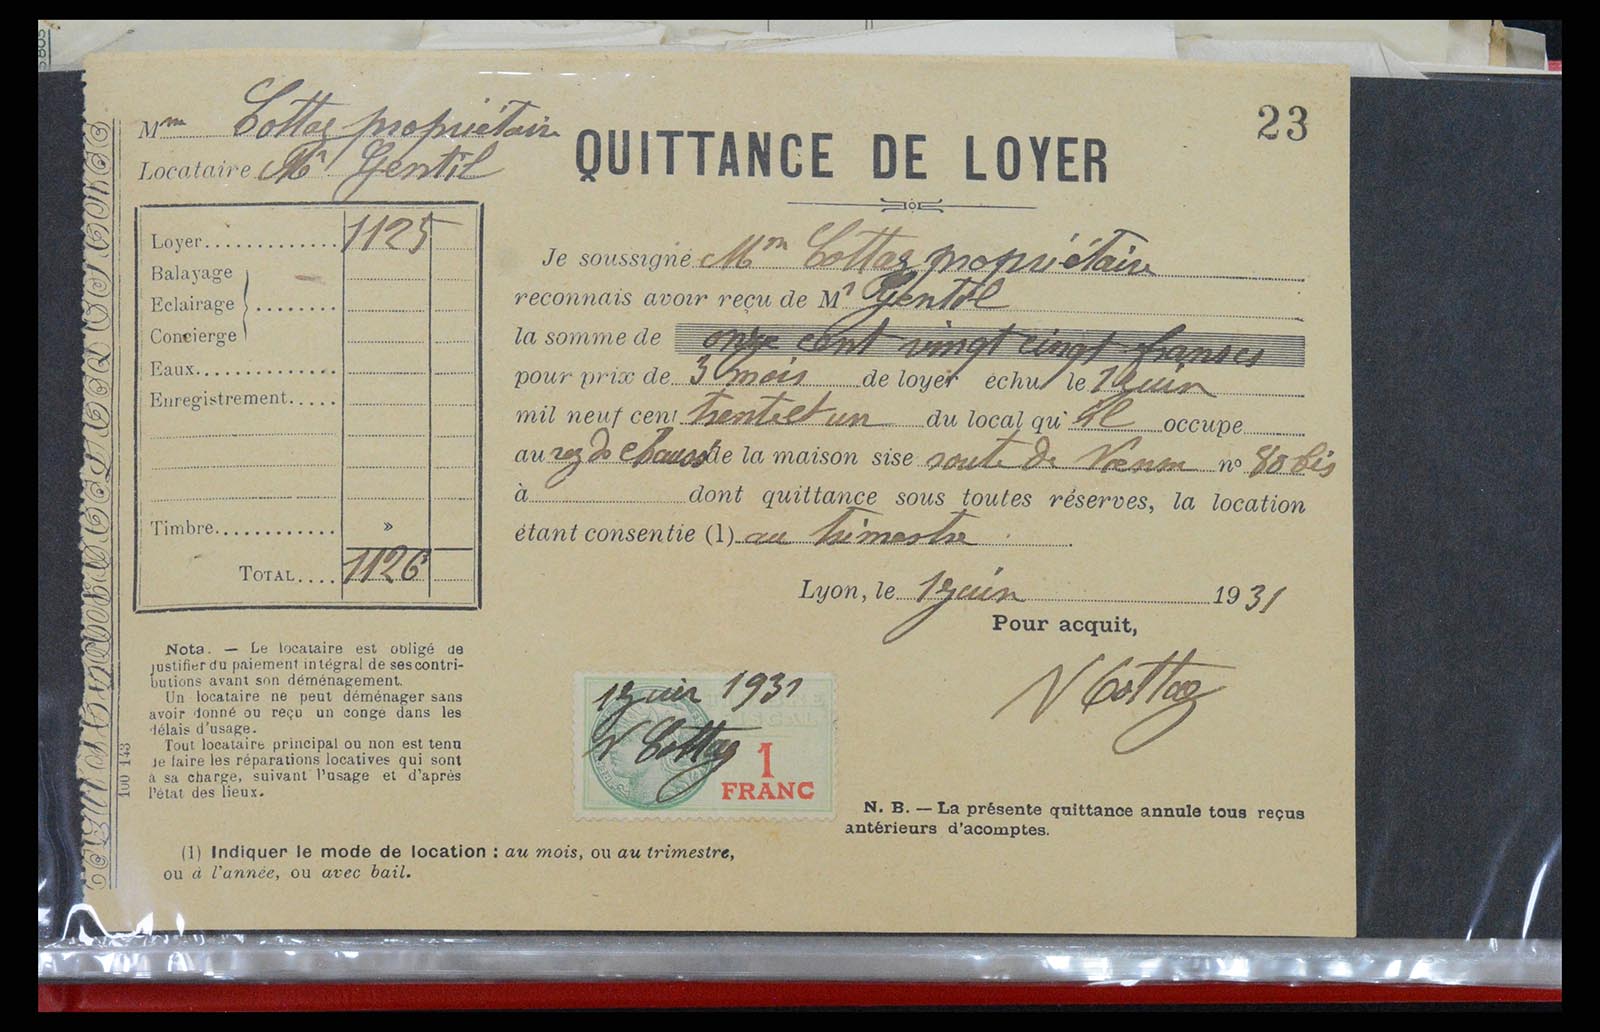 23
Mᵐ Cottaz propriétaire
Locataire Mʳ Gentil
QUITTANCE DE LOYER
Loyer............. 1125
Balayage
Eclairage ........
Concierge
Eaux.............
Enregistrement.....
Timbre............ »
TOTAL.... 1126
Je soussigné Mᵐ Cottaz propriétaire
reconnais avoir reçu de Mʳ Gentil
la somme de onze cent vingt cinqt francs
pour prix de 3 mois de loyer échu le 1 juin
mil neuf cent trente et un du local qu'il occupe
au rez de chauss de la maison sise route de Vienne nº 80 bis
à dont quittance sous toutes réserves, la location
étant consentie (1) au trimestre
Lyon, le 1 juin 1931
Pour acquit,
V Cottaz
1 juin 1931
V Cottaz
FISCAL
1
FRANC
Nota. — Le locataire est obligé de
justifier du paiement intégral de ses contri-
butions avant son déménagement.
Un locataire ne peut déménager sans
avoir donné ou reçu un congé dans les
délais d'usage.
Tout locataire principal ou non est tenu
de faire les réparations locatives qui sont
à sa charge, suivant l'usage et d'après
l'état des lieux.
100 143
N. B. — La présente quittance annule tous reçus
antérieurs d'acomptes.
(1) Indiquer le mode de location : au mois, ou au trimestre,
ou à l'année, ou avec bail.